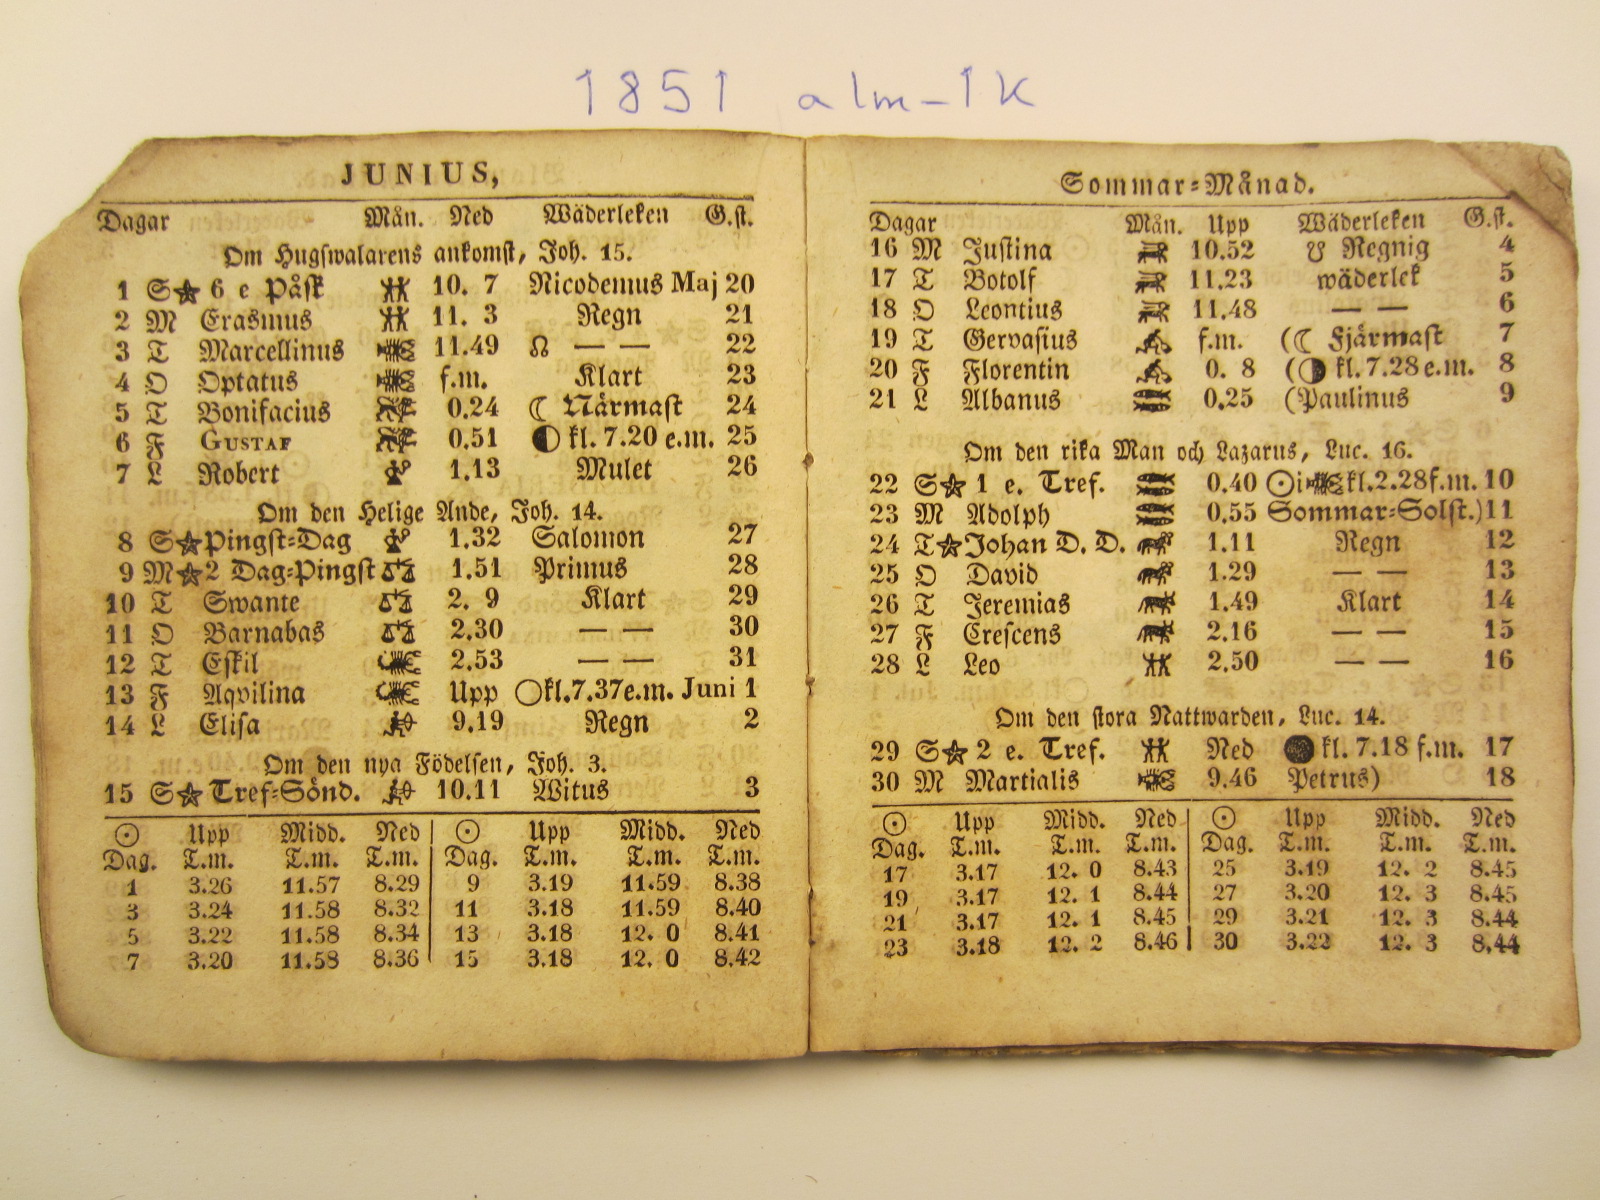 1851 alm-1K
JUNIUS,
Dagar Mån. Ned Wäderleken G.st.
Om Hugswalarens ankomst, Joh. 15.
1 S★ 6 e Påsk 10. 7 Nicodemus Maj 20
2 M Erasmus 11. 3 Regn 21
3 T Marcellinus 11.49 ☊ — — 22
4 O Optatus f.m. Klart 23
5 T Bonifacius 0.24 ☾ Närmast 24
6 F GUSTAF 0.51 ◐ kl. 7.20 e.m. 25
7 L Robert 1.13 Mulet 26
Om den Helige Ande, Joh. 14.
8 S★Pingst-Dag 1.32 Salomon 27
9 M★2 Dag-Pingst ♎ 1.51 Primus 28
10 T Swante ♎ 2. 9 Klart 29
11 O Barnabas ♎ 2.30 — — 30
12 T Eskil 2.53 — — 31
13 F Aqvilina Upp ○kl.7.37e.m. Juni 1
14 L Elisa 9.19 Regn 2
Om den nya Födelsen, Joh. 3.
15 S★ Tref-Sönd. 10.11 Witus 3
☉ Upp Midd. Ned ☉ Upp Midd. Ned
Dag. T.m. T.m. T.m. Dag. T.m. T.m. T.m.
1 3.26 11.57 8.29 9 3.19 11.59 8.38
3 3.24 11.58 8.32 11 3.18 11.59 8.40
5 3.22 11.58 8.34 13 3.18 12. 0 8.41
7 3.20 11.58 8.36 15 3.18 12. 0 8.42
Sommar-Månad.
Dagar Mån. Upp Wäderleken G.st.
16 M Justina 10.52 ☋ Regnig 4
17 T Botolf 11.23 wäderlek 5
18 O Leontius 11.48 — — 6
19 T Gervasius f.m. (☾ Fjärmast 7
20 F Florentin 0. 8 (◑ kl. 7.28 e.m. 8
21 L Albanus 0.25 (Paulinus 9
Om den rika Man och Lazarus, Luc. 16.
22 S★ 1 e. Tref. 0.40 ☉i kl.2.28f.m. 10
23 M Adolph 0.55 Sommar-Solst.) 11
24 T★Johan D. D. 1.11 Regn 12
25 O David 1.29 — — 13
26 T Jeremias 1.49 Klart 14
27 F Crescens 2.16 — — 15
28 L Leo 2.50 — — 16
Om den stora Nattwarden, Luc. 14.
29 S★ 2 e. Tref. Ned ● kl. 7.18 f.m. 17
30 M Martialis 9.46 Petrus) 18
☉ Upp Midd. Ned ☉ Upp Midd. Ned
Dag. T.m. T.m. T.m. Dag. T.m. T.m. T.m.
17 3.17 12. 0 8.43 25 3.19 12. 2 8.45
19 3.17 12. 1 8.44 27 3.20 12. 3 8.45
21 3.17 12. 1 8.45 29 3.21 12. 3 8.44
23 3.18 12. 2 8.46 30 3.22 12. 3 8.44